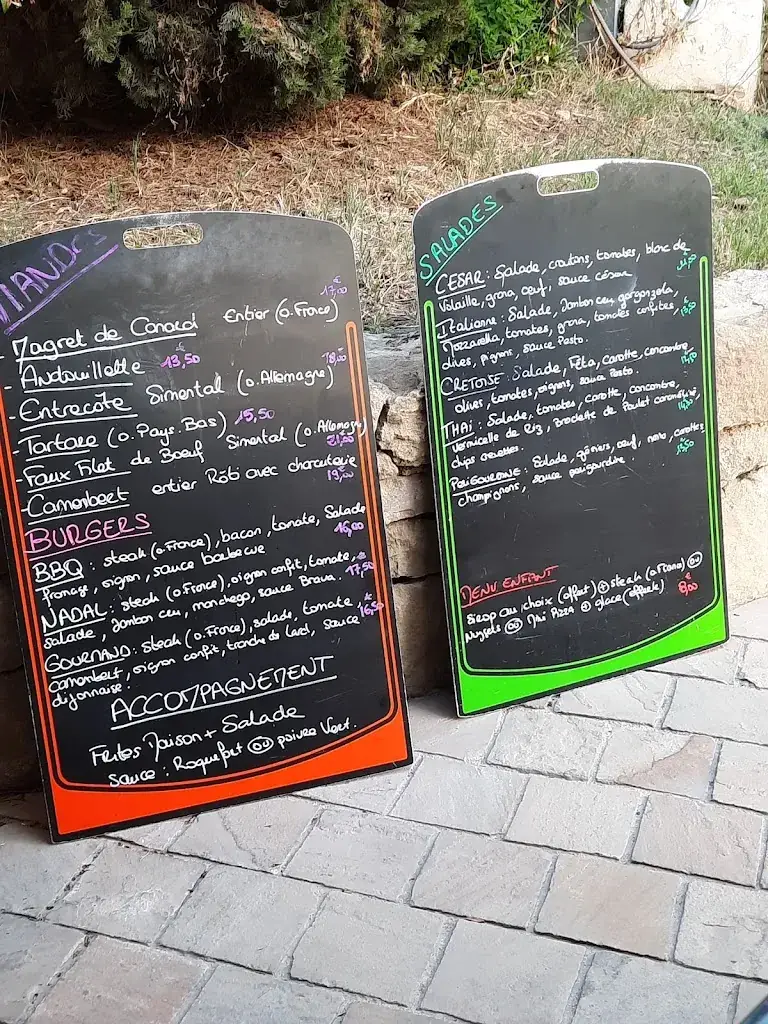 VIANDES
17,00€
- Magret de Canard Entier (o.France)
- Andouillette 13,50
18,00
- Entrecôte Simental (o.Allemagne)
- Tartare (o.Pays.Bas) 15,50
- Faux Filet de Bœuf Simental (o.Allemagne)
21,00
- Camembert entier Rôti avec charcuterie
19,00
BURGERS
BBQ : steak (o.France), bacon, tomate, Salade
fromage, oignon, sauce barbecue 16,00
NADAL : steak (o.France), oignon confit, tomate,
salade, Jambon cru, manchego, sauce Brava. 17,50
GOURMAND : steak (o.France), salade, tomate 16,50
camembert, oignon confit, tranche de lard, sauce
dijonnaise.
ACCOMPAGNEMENT
Frites Maison + Salade
Sauce : Roquefort OU poivre Vert.
SALADES
CESAR : Salade, croutons, tomates, blanc de
Volaille, grana, œuf, sauce césar
Italienne : Salade, Jambon cru, gorgonzola,
Mozzarella, tomates, grana, tomates confites,
olives, pignons, sauce Pesto.
CRETOISE : Salade, Féta, Carotte, concombre
olives, tomates, oignons, sauce Pesto.
THAI : Salade, tomates, carotte, concombre,
Vermicelle de Riz, Brochette de Poulet caramélisé
chips crevettes.
PERIGOURDINE : Salade, gésiers, œuf, noix, carottes
champignons, sauce perigourdine. 13,50
MENU ENFANT
Sirop au choix (offert) + steak (o.France) OU
Nuggets OU Mini PIZZA + glace (offerte) 8,00€